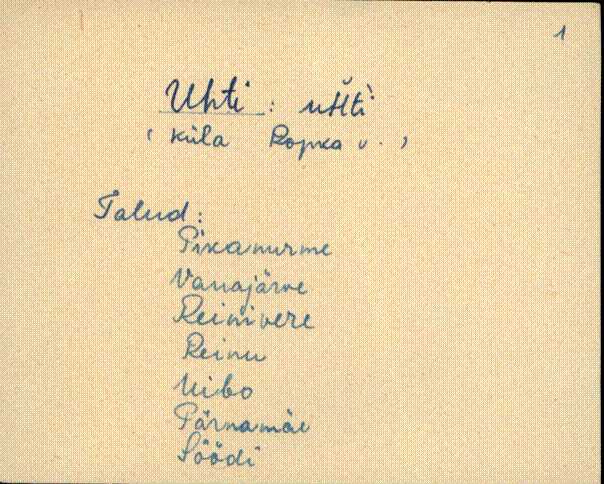 1
Uhti : uHti`
( küla Ropka v. )
Talud:
Pikanurme
Vanajärve
Reinivere
Reinu
Uibo
Pärnamäe
Söödi